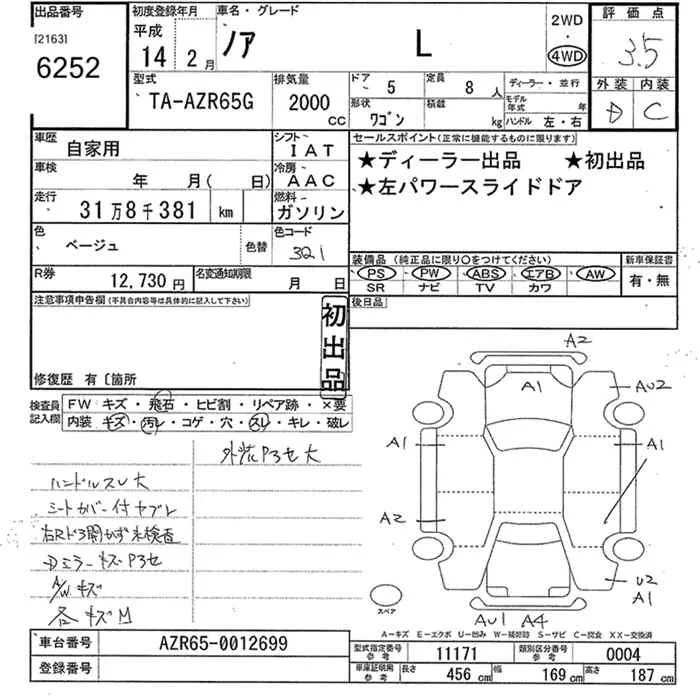 出品番号 初度登録年月 車名・グレード 2WD 評価点
[2163] 平成
6252 14 2月 ノア L 4WD 3.5
型式 排気量 ドア 5 定員 8人 ディーラー・並行 外装 内装
TA-AZR65G 2000CC 形状 ワゴン 積載 kg モデル年式 年 D C
ハンドル 左・右
車歴 自家用 シフト IAT セールスポイント(正常に機能するものに限ります)
車検 年 月( 日) 冷房 AAC ★ディーラー出品 ★初出品
走行 31万8千381 km 燃料 ガソリン ★左パワースライドドア
色 ベージュ 色替 色コード 321
装備品(純正品に限り○をつけてください) 新車保証書
R券 12,730円 名変通知期限 月 日 PS PW ABS エアB AW 有・無
SR ナビ TV カワ
注意事項申告欄(不具合内容等は具体的に記入して下さい) 後日品
初出品
修復歴 有〔箇所
検査員記入欄 FW キズ・飛石・ヒビ割・リペア跡・×要
内装 キズ・汚レ・コゲ・穴・スレ・キレ・破レ
外装Pコセ大
ハンドルスレ大
シートカバー付ヤブレ
右Rドア開かず未検査
Dミラーキズ Pコセ
A/Wキズ
各キズM
A2
A1 AU2
A1 A1
A2
U2
A1
スペア
AU1 A4
A-キズ E-エクボ U-凹み W-補修跡 S-サビ C-腐食 XX-交換済
車台番号 AZR65-0012699 型式指定番号 参考 11171 類別区分番号 参考 0004
登録番号 車庫証明用 参考 長さ 456cm 幅 169cm 高さ 187cm